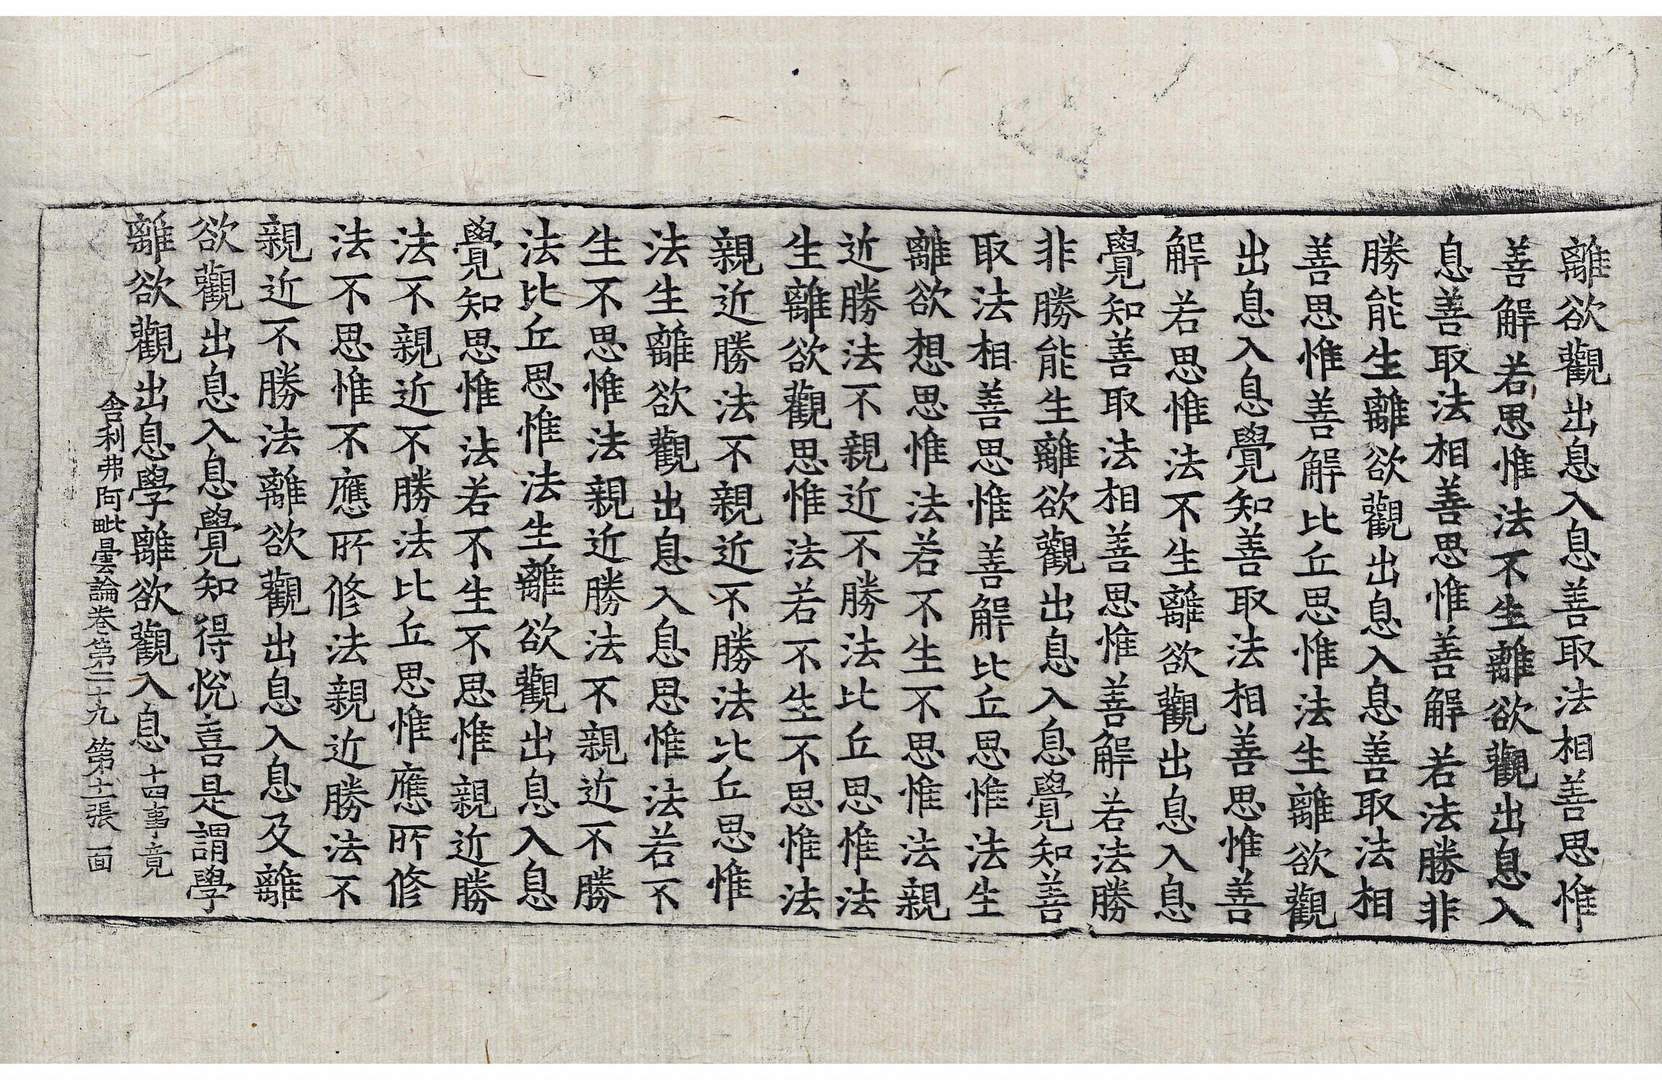 離欲觀出息入息善取法相善思惟
善解若思惟法不生離欲觀出息入
息善取法相善思惟善解若法勝非
勝能生離欲觀出息入息善取法相
善思惟善解比丘思惟法生離欲觀
出息入息覺知善取法相善思惟善
解若思惟法不生離欲觀出息入息
覺知善取法相善思惟善解若法勝
非勝能生離欲觀出息入息覺知善
取法相善思惟善解比丘思惟法生
離欲想思惟法若不生不思惟法親
近勝法不親近不勝法比丘思惟法
生離欲觀思惟法若不生不思惟法
親近勝法不親近不勝法比丘思惟
法生離欲觀出息入息思惟法若不
生不思惟法親近勝法不親近不勝
法比丘思惟法生離欲觀出息入息
覺知思惟法若不生不思惟親近勝
法不親近不勝法比丘思惟應所修
法不思惟不應所修法親近勝法不
親近不勝法離欲觀出息入息及離
欲觀出息入息覺知得悅喜是謂學
離欲觀出息學離欲觀入息 十四事竟
舍利弗阿毗曇論卷第二十九 第十一張 靣